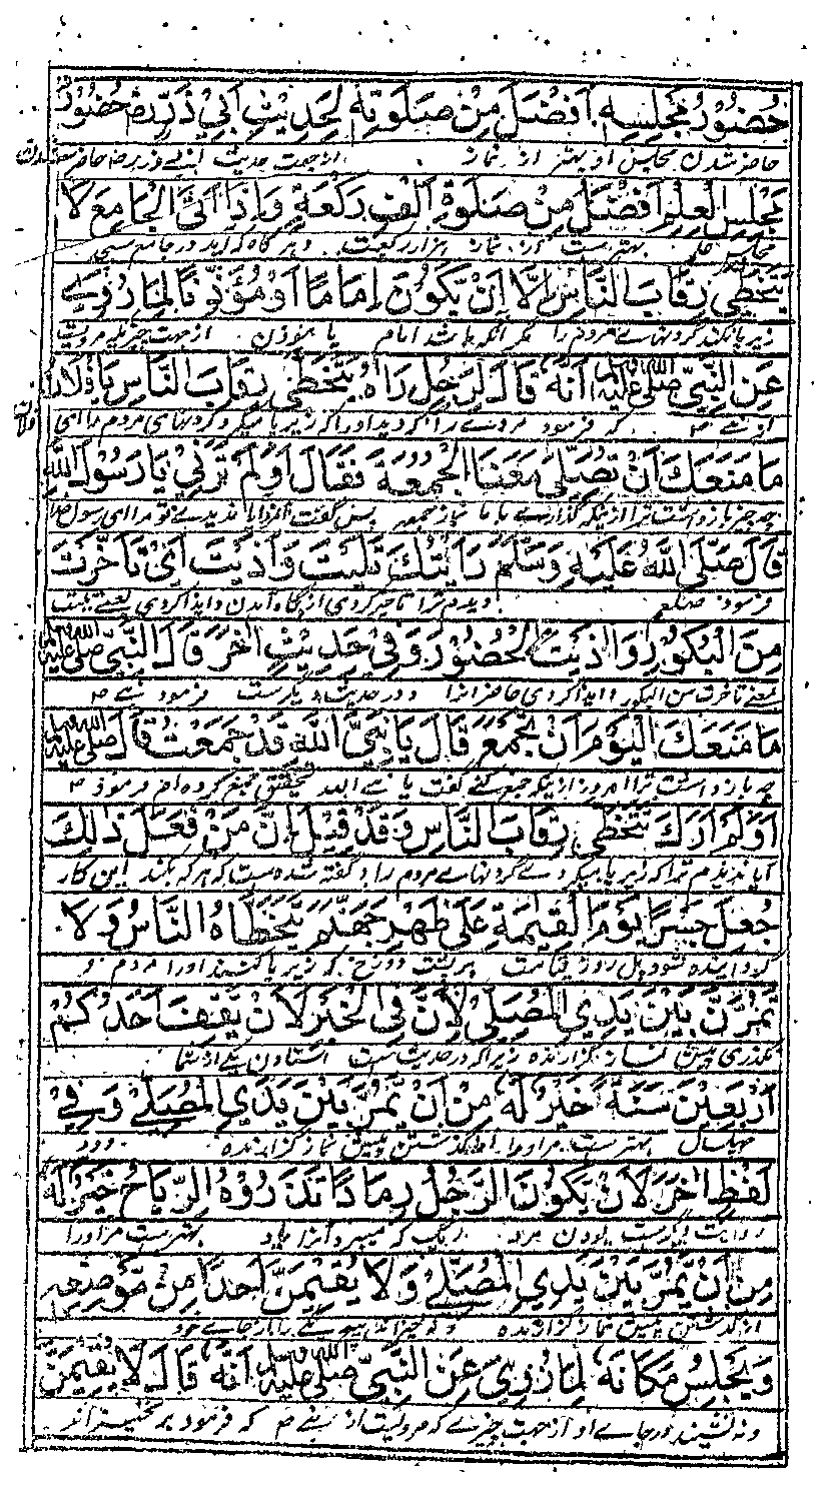 حُضُوْرُ مَجْلِسِهٖ اَفْضَلُ مِنْ صَلٰوتِهٖ لِحَدِيْثِ اَبِيْ ذَرٍّ رض حُضُوْرُ
حاضر شدن مجلس او بهتر از نماز از جهت حدیث ابی ذر رضه حاضر شدن
مَجْلِسِ الْعِلْمِ اَفْضَلُ مِنْ صَلٰوةِ اَلْفِ رَكْعَةٍ وَاِذَا اَتَى الْجَامِعَ لَا
مجلس علم بهتر ست از نماز هزار رکعت و هر گاه که آید در جامع مسجد
يَتَخَطّٰى رِقَابَ النَّاسِ اِلَّا اَنْ يَّكُوْنَ اِمَامًا اَوْ مُؤَذِّنًا لِمَا رُوِيَ
زیر پا نکند گردنهاے مردم را مگر آنکه باشد امام یا مؤذن از جهت چیزیکه مرویست
عَنِ النَّبِيِّ صَلَّى اللهُ عَلَيْهِ وَسَلَّمَ اَنَّهٗ قَالَ لِرَجُلٍ رَاٰهُ يَتَخَطّٰى رِقَابَ النَّاسِ يَا فُلَانُ
از نبے ص که فرمود مردے را که دید او را که زیر پا میکرد گردنهای مردم را ای فلان
مَا مَنَعَكَ اَنْ تُصَلِّيَ مَعَنَا الْجُمُعَةَ فَقَالَ اَوَلَمْ تَرَنِيْ يَا رَسُوْلَ اللهِ
چه چیز باز داشت ترا از ینکه گذارے با ما نماز جمعه پس گفت آیا ندیدے تو مرا ای رسول خدا
قَالَ صَلَّى اللهُ عَلَيْهِ وَسَلَّمَ رَاَيْتُكَ تَاَنَّيْتَ وَاٰذَيْتَ اَيْ تَاَخَّرْتَ
فرمود صلعم دیدم ترا تاخیر کردی از گاه آمدن و ایذا کردی یعنے
مِنَ الْبُكُوْرِ وَاٰذَيْتَ الْحُضُوْرَ وَفِيْ حَدِيْثٍ اٰخَرَ قَالَ النَّبِيُّ صَلَّى اللهُ عَلَيْهِ وَسَلَّمَ
یعنے تاخرت من البکور و ایذا کردی حاضر انرا و در حدیث دیگر ست فرمود نبے ص
مَا مَنَعَكَ الْيَوْمَ اَنْ تُجَمِّعَ قَالَ يَا نَبِيَّ اللهِ قَدْ جَمَّعْتُ قَالَ صَلَّى اللهُ عَلَيْهِ وَسَلَّمَ
چه باز داشت ترا امروز از ینکه جمع کنے گفت یا نبے الله بتحقیق جمع کرده ام فرمود ص
اَوَلَمْ اَرَكَ تَتَخَطّٰى رِقَابَ النَّاسِ وَقَدْ قِيْلَ اِنَّ مَنْ فَعَلَ ذٰلِكَ
آیا ندیدم ترا که زیر پا میکردے گردنهاے مردم را و گفته شده ست که هر که بکند این کار
جُعِلَ جِسْرًا يَوْمَ الْقِيٰمَةِ عَلٰى ظَهْرِ جَهَنَّمَ يَتَخَطَّاهُ النَّاسُ وَلَا
گردانیده شود پل روز قیامت بر پشت دوزخ که زیر پا کنند او را مردم و
يَمُرَّنَّ بَيْنَ يَدَيِ الْمُصَلِّيْ لِاَنَّ فِي الْخَبَرِ لَاَنْ يَّقِفَ اَحَدُكُمْ
نگذری پیش نماز گزارنده زیرا که در حدیث ست استادن یکے از شما
اَرْبَعِيْنَ سَنَةً خَيْرٌ لَهٗ مِنْ اَنْ يَّمُرَّ بَيْنَ يَدَيِ الْمُصَلِّيْ وَفِيْ
چهل سال بهتر ست مر او را از گذشتن پیش نماز گزارنده و در
لَفْظٍ اٰخَرَ لَاَنْ يَّكُوْنَ الرَّجُلُ رِمَادًا تَذْرُوْهُ الرِّيَاحُ خَيْرٌ لَهٗ
روایت دیگر ست بودن مرد ریگ که میبرد آنرا باد بهتر ست مر او را
مِنْ اَنْ يَّمُرَّ بَيْنَ يَدَيِ الْمُصَلِّيْ وَلَا يُقِيْمَنَّ اَحَدًا مِنْ مَّوْضِعِهٖ
از گذشتن پیش نماز گزارنده و نه خیزاند هیچ یکے را از جاے خود
وَيَجْلِسُ مَكَانَهٗ لِمَا رُوِيَ عَنِ النَّبِيِّ صَلَّى اللهُ عَلَيْهِ وَسَلَّمَ اَنَّهٗ قَالَ لَا يُقِيْمَنَّ
و نه نشیند در جاے او از جهت چیزے که مرویست از نبے ص که فرمود بر نخیزاند